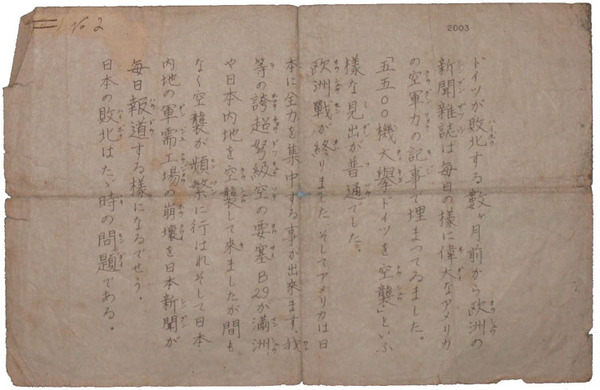 No 2
2003
ドイツが敗北する數ヶ月前から欧洲の
新聞雜誌は毎日の様に偉大なアメリカ
の空軍力の記事で埋まつてゐました。
「五五〇〇機大擧ドイツを空襲」といふ
様な見出が普通でした。
欧洲戰が終りました そしてアメリカは日
本に全力を集中する事が出來ます。我
等の誇超弩級空の要塞B29が滿洲
や日本内地を空襲して來ましたが間も
なく空襲が頻繁に行はれそして日本
内地の軍需工場の崩壊を日本新聞が
毎日報道する様になるでせう。
日本の敗北はたゞ時の問題である。